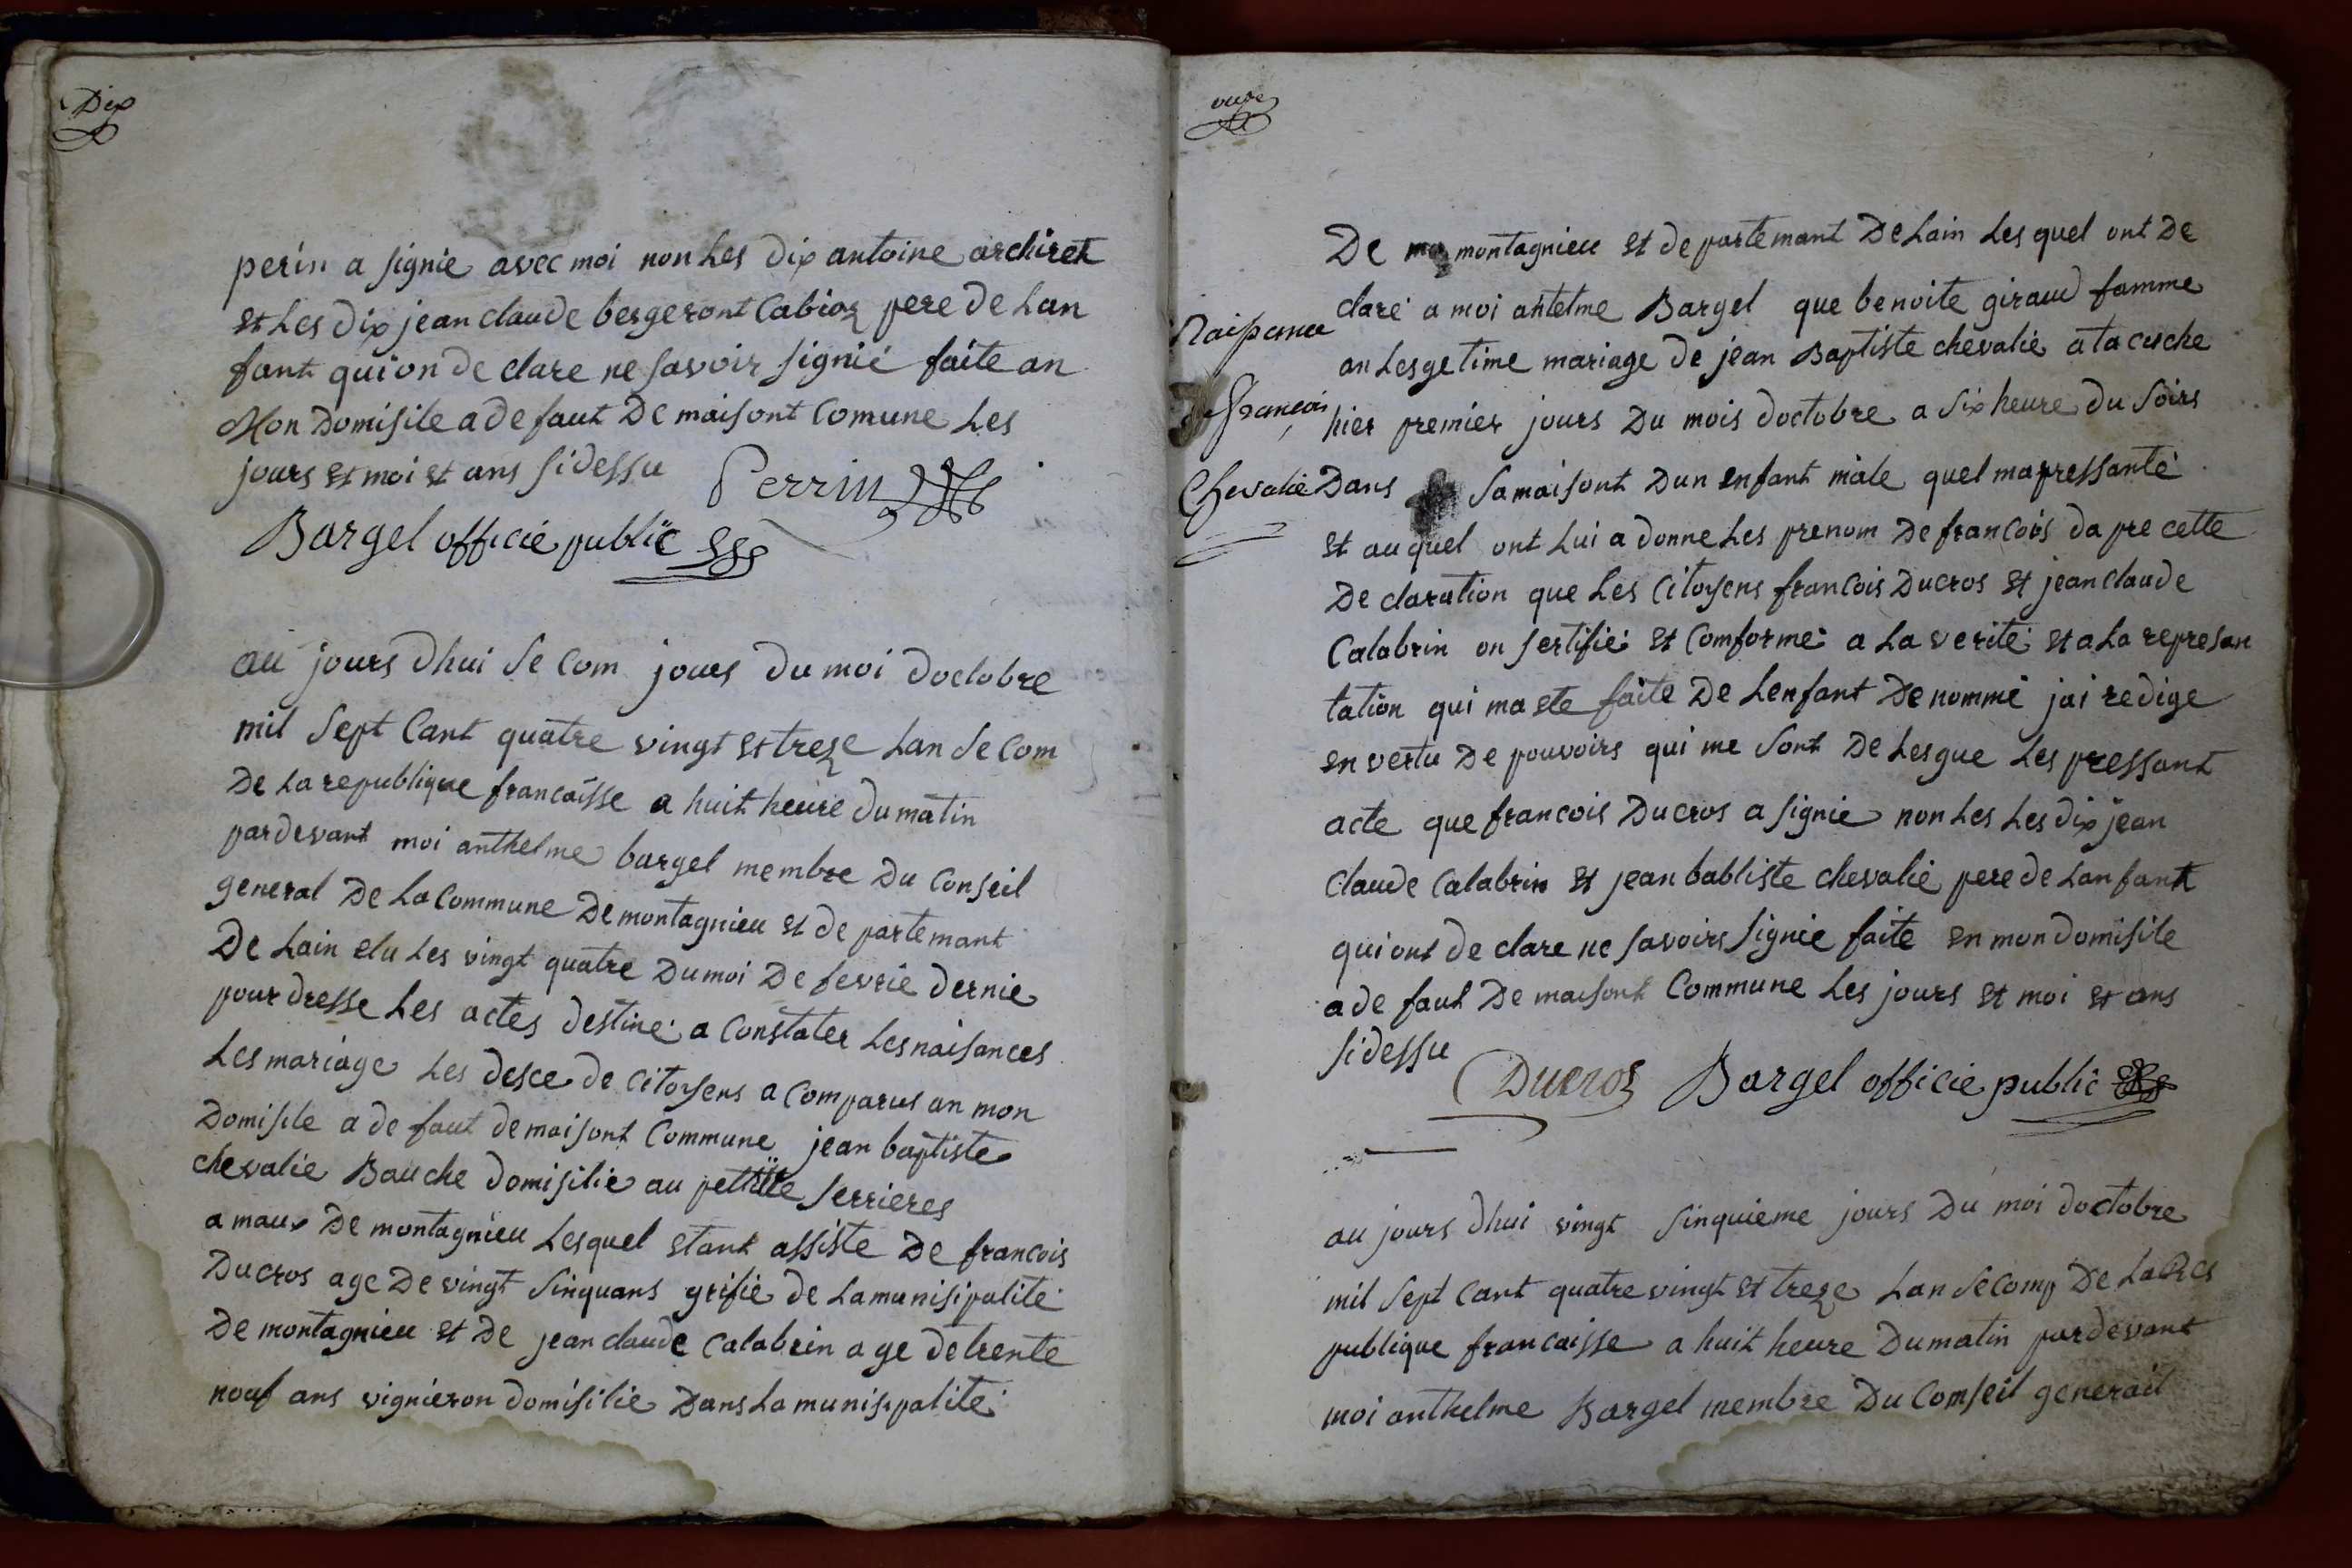 Dix
perin a signie avec moi non Les dix antoine archiret
et Les dix jean claude bergeront Cabioz pere de Lan
fant qui on de clare ne savoir signié faite an
Mon Domisile a de faut De maisont Comune Les
jours et moi et ans sidessu Perrin
Bargel officié public
au jours dhui se Com jours du moi doctobre
mil sept Cant quatre vingt et treze Lan se Com
De La republique francaisse a huit heure du matin
par devant moi anthelme bargel membre Du Conseil
general De La Commune De montagnieu et de partemant
De Lain elu Les vingt quatre Du moi De fevrie dernie
pour dresse Les actes destine a Constater Les naisances
Les mariage Les desce de Citoyens a Comparus an mon
Domisile a de faut de maisont Commune jean baptiste
chevalie Bauche domisilie au petitte serrieres
a maux De montagnieu Lesquel etant assiste De francois
Ducros age De vingt sinquans grifie de La munisipalite
De montagnieu et De jean claude Calabrin age de trente
nouf ans vignieron domisilie Dans La munisipalite
onze
De montagnieu et de partemant De Lain Les quel ont De
claré a moi antelme Bargel que benoite giraud famme
an Lesgetime mariage de jean Baptiste chevalie ata cuche
hier premier jours Du mois doctobre a six heure du soirs
Dans sa maisont Dun enfant mâle quel ma pressanté
Naissance
De francois
Chevalie
et au quel ont Lui a donne Les prenom De francois da pre cette
De claration que Les Citoyens francois Ducros et jean claude
Calabrin on sertifié et Comforme a La verité et a La represan
tation qui ma ete faite De Lenfant De nommé jai redige
en vertu De pouvoirs qui me sont De Lesgue Les pressant
acte que francois Ducros a signie non Les Les dix jean
Claude Calabrin et jean babtiste chevalie pere de Lanfant
qui ont de clare ne savoirs signie faite en mon domisile
a de faut De maisont Commune Les jours et moi et ans
sidessu
Ducros Bargel officie public
au jours dhui vingt sinquieme jours Du moi doctobre
mil sept Cant quatre vingt et treze Lan se Comp De La Res
publique francaisse a huit heure Du matin par devant
moi anthelme Bargel membre Du Comseil generail